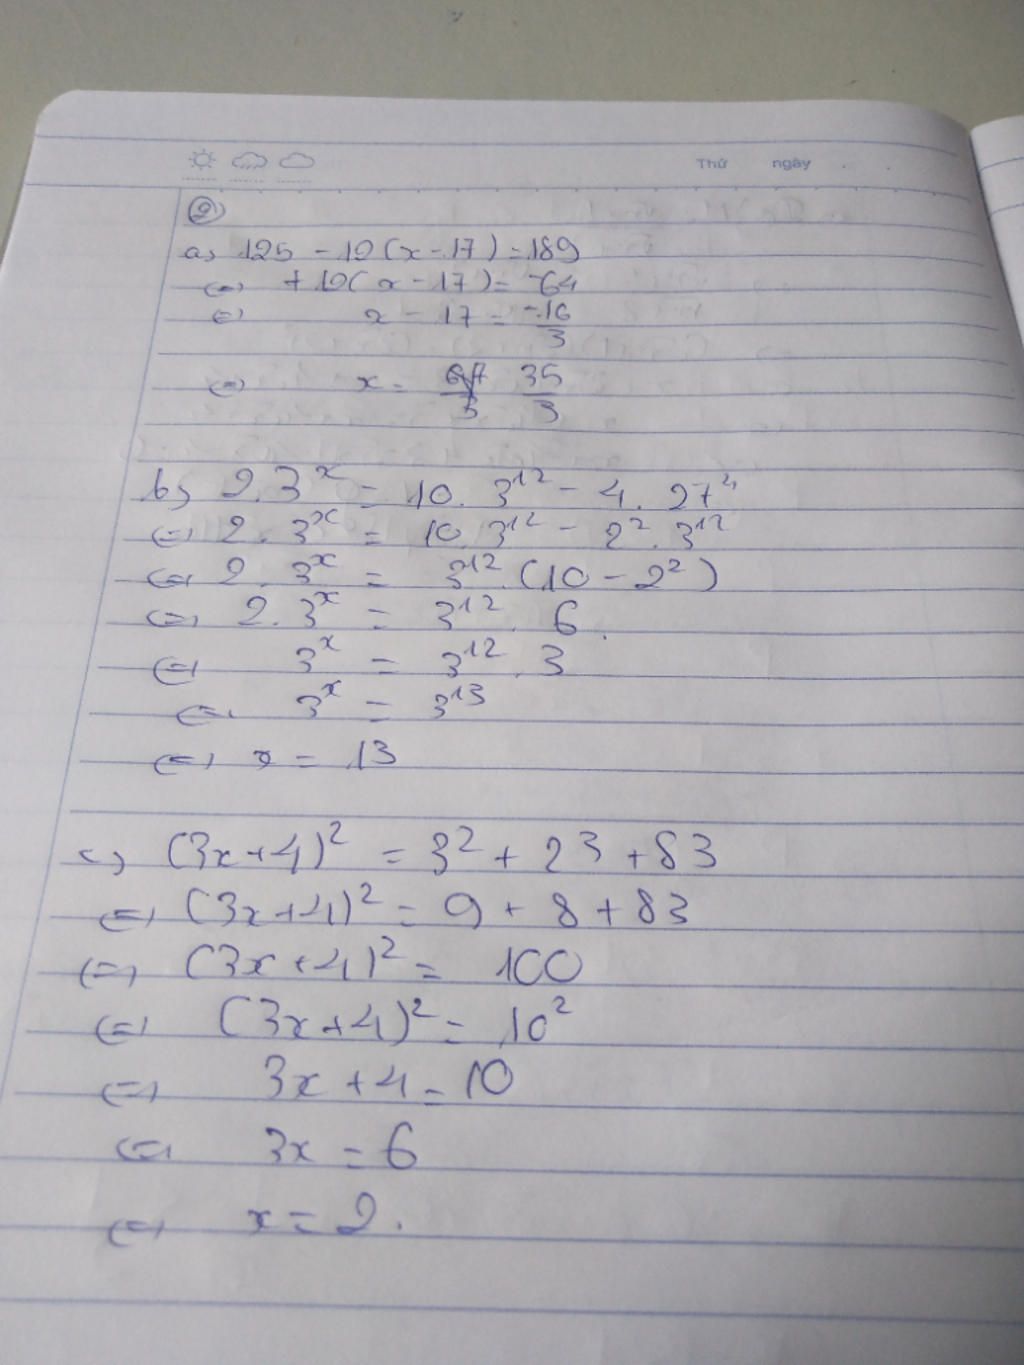 Thứ ngày
②
a, 125 - 12(x - 17) = 189
(=) + 12(x - 17) = -64
(=) x - 17 = -16/3
(=) x = 35/3
b, 2.3^x = 10.3^12 - 4.27^4
(=) 2.3^x = 10.3^12 - 2^2.3^12
(=) 2.3^x = 3^12.(10 - 2^2)
(=) 2.3^x = 3^12.6.
(=) 3^x = 3^12.3
(=) 3^x = 3^13
(=) x = 13
c, (3x+4)^2 = 3^2 + 23 + 83
(=) (3x+4)^2 = 9 + 8 + 83
(=) (3x+4)^2 = 100
(=) (3x+4)^2 = 10^2
(=) 3x + 4 = 10
(=) 3x = 6
(=) x = 2.